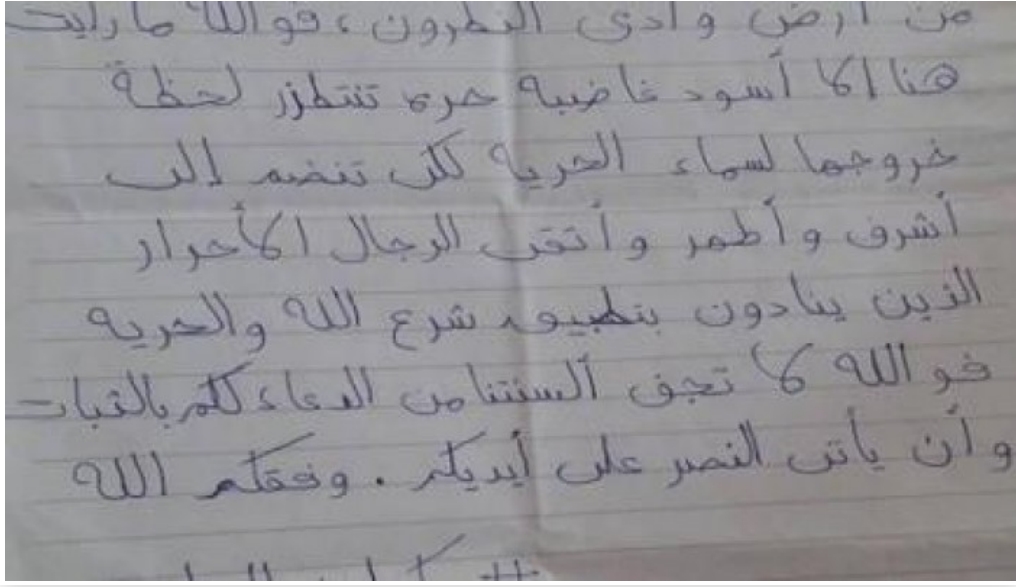 من أرض وادى النطرون ، فوالله ما رأيت
هنا إلا أسود غاضبه حره تنتظر لحظة
خروجها لسماء الحرية لكى تنضم إلى
أشرف وأطهر وأتقى الرجال الأحرار
الذين ينادون بتطبيق شرع الله والحريه
فو الله لا تجف ألسنتنا من الدعاء لكم بالثبات
وأن يأتى النصر على أيديكم . وفقكم الله